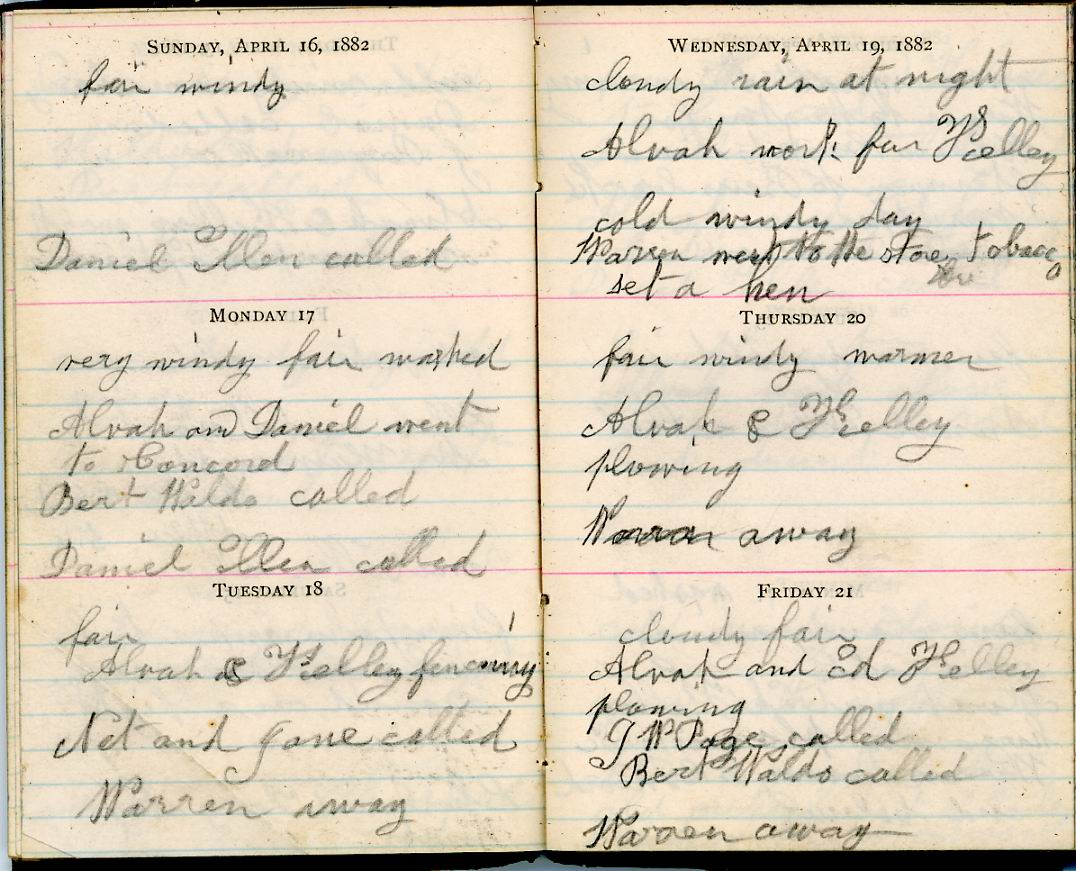 SUNDAY, APRIL 16, 1882
fair windy
Daniel Allen called
MONDAY 17
very windy fair washed
Alvah and Daniel went
to Concord
Bert Waldo called
Daniel Allen called
TUESDAY 18
fair
Alvah & Kelley fencing
Net and Jane called
Warren away
WEDNESDAY, APRIL 19, 1882
cloudy rain at night
Alvah work for Kelley
cold windy day
Warren went to the store tobacco
set a hen
THURSDAY 20
fair windy warmer
Alvah & Kelley
plowing
Warren away
FRIDAY 21
cloudy fair
Alvah and Ed Kelley
plowing
J W Page called
Bert Waldo called
Warren away